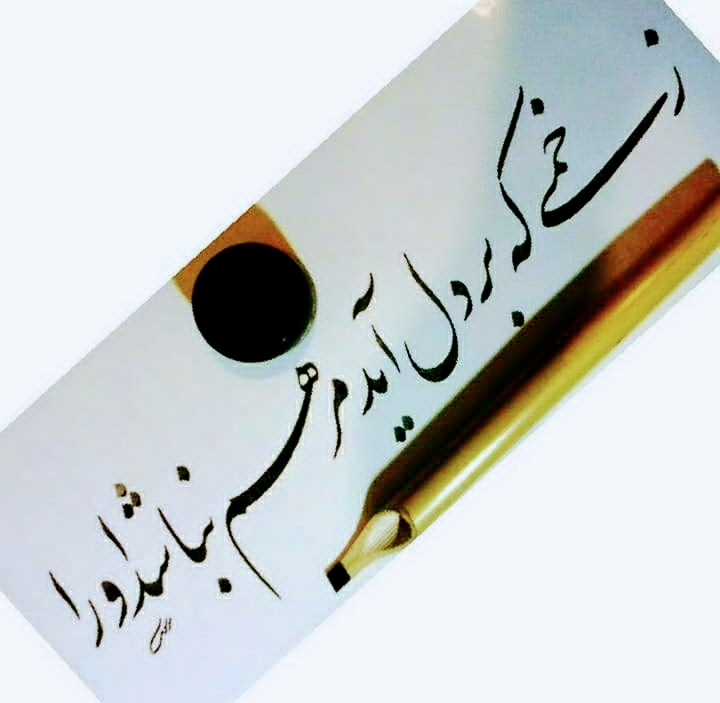 زخمے که بر دل آید مرهم نباشد او را